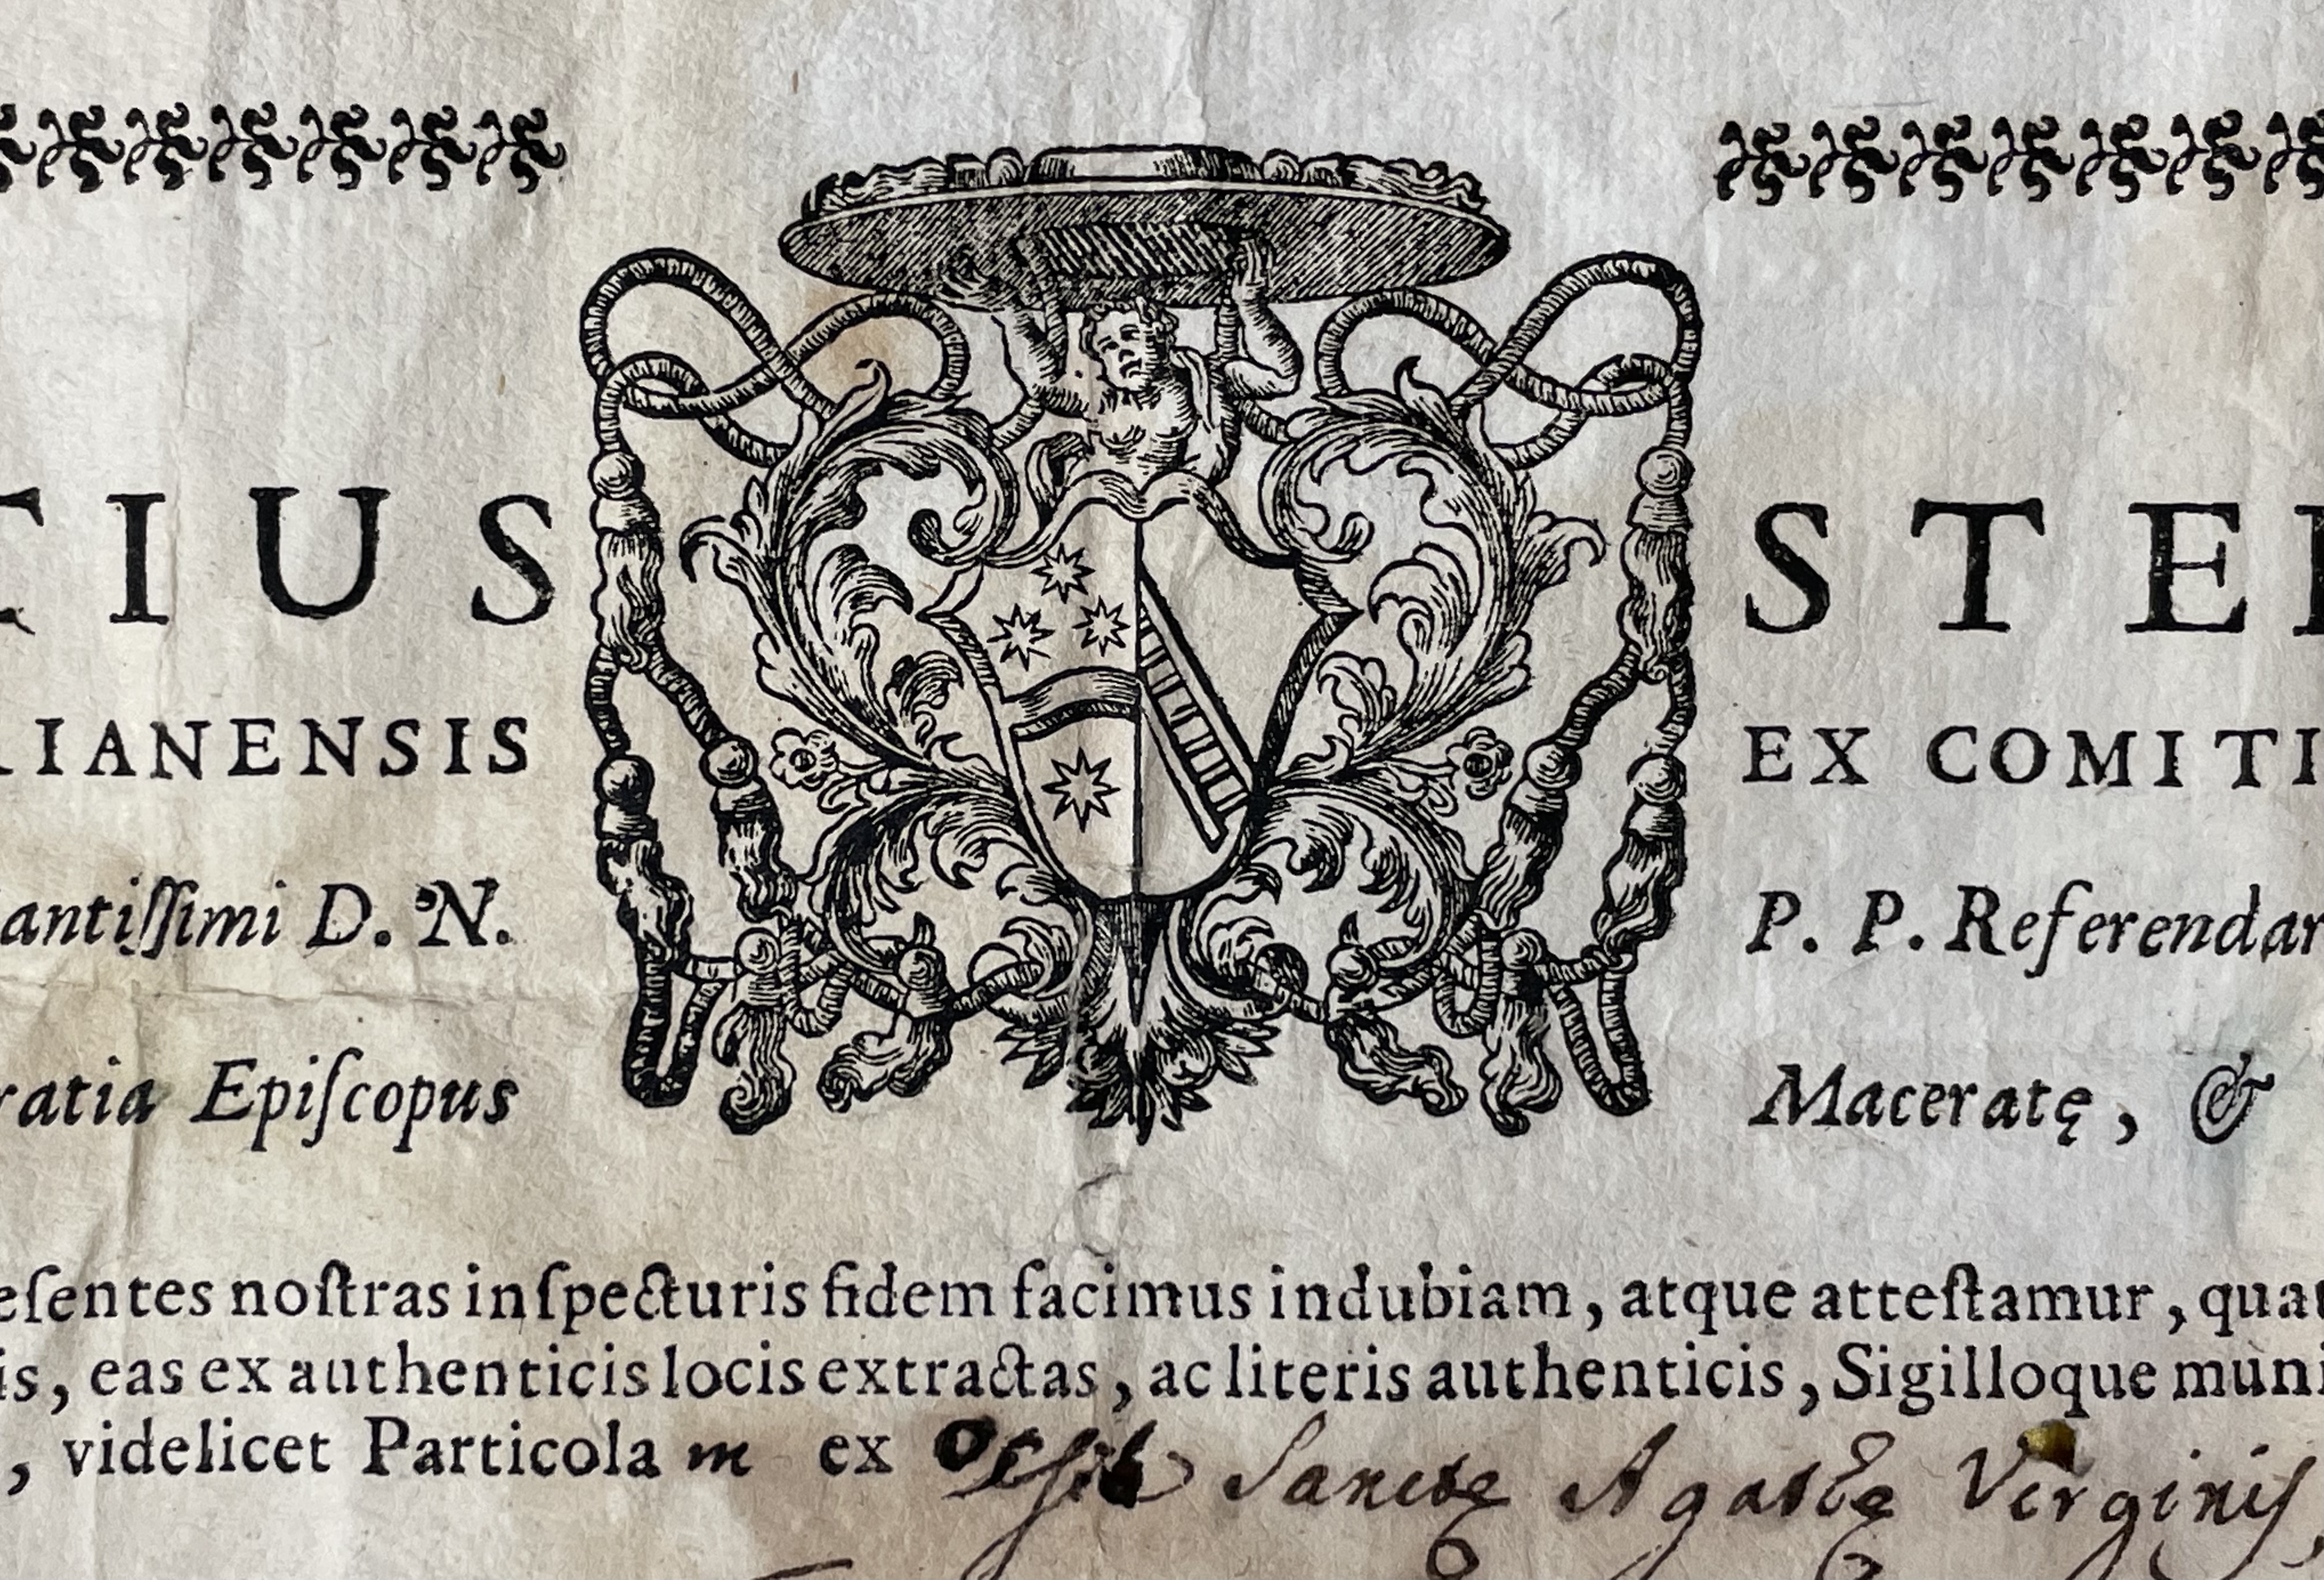 CIUS STE
IANENSIS EX COMITI
antiſſimi D. N. P. P. Referendar
ratia Epiſcopus Maceratę, &
eſentes noſtras inſpecturis fidem facimus indubiam, atque atteſtamur, qua
is, eas ex authenticis locis extractas, ac literis authenticis, Sigilloque muni
, videlicet Particola m ex Sanctę Agatę Virginis,